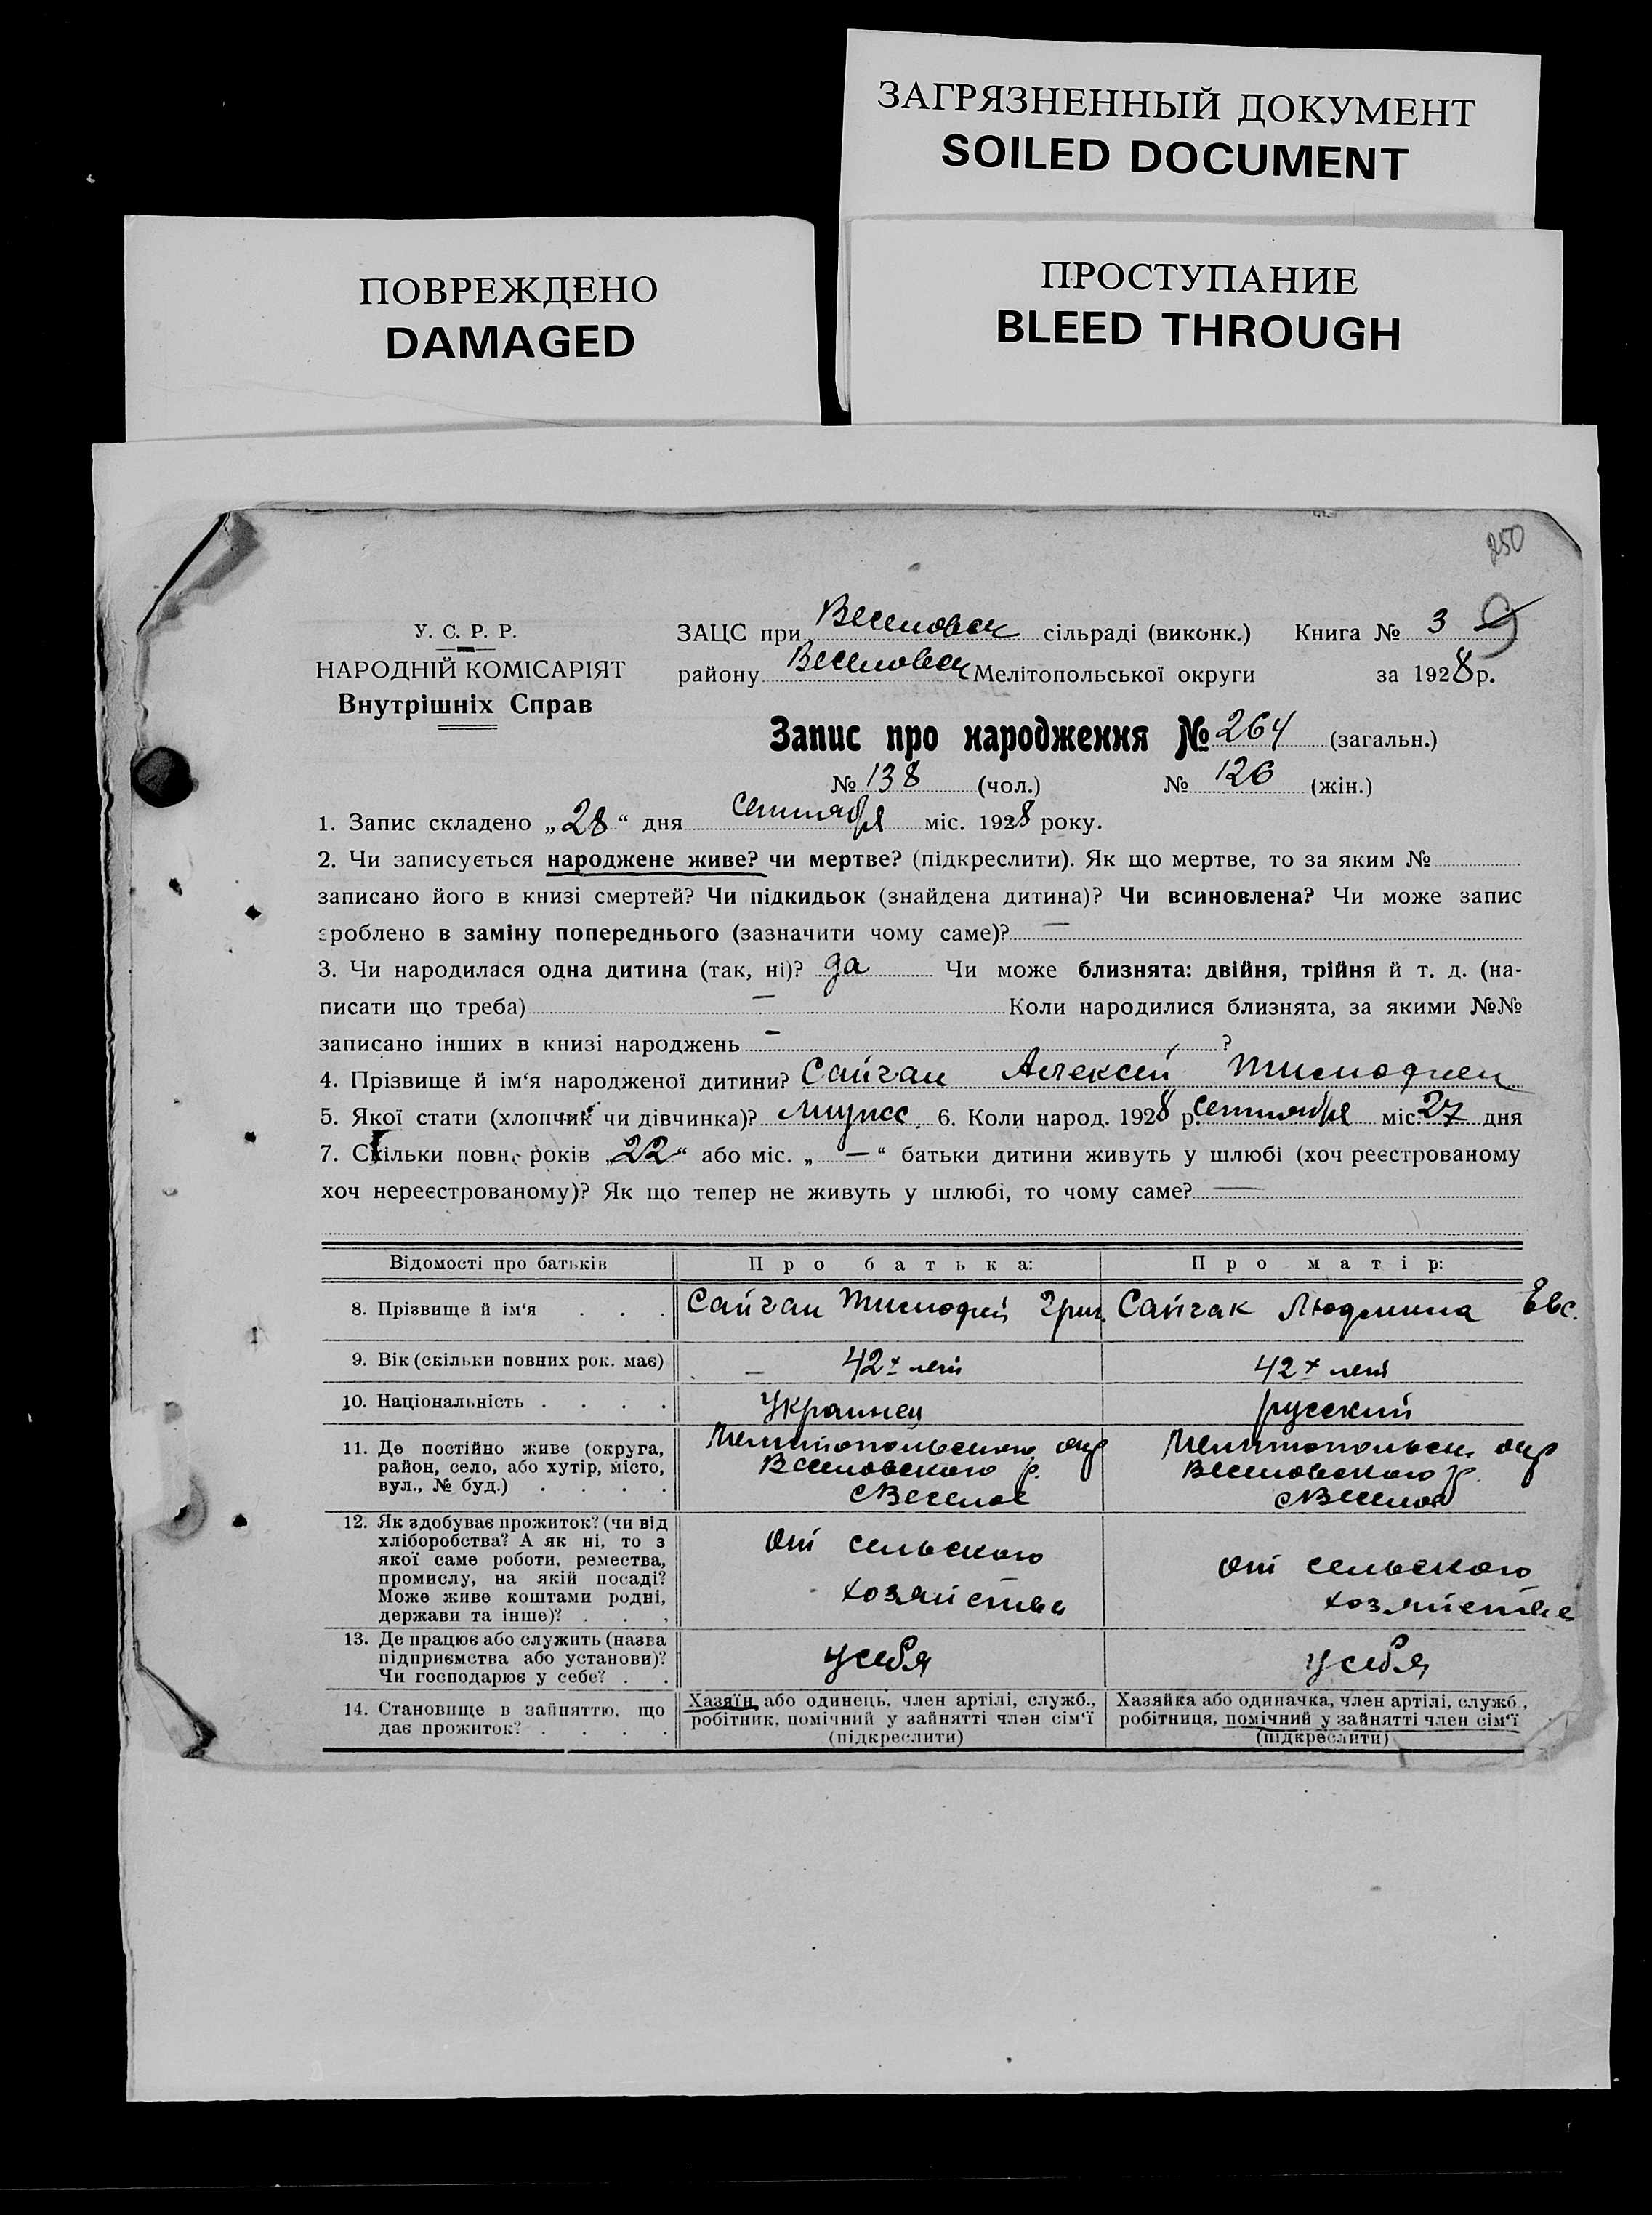 ЗАГРЯЗНЕННЫЙ ДОКУМЕНТ
SOILED DOCUMENT
ПОВРЕЖДЕНО
DAMAGED
ПРОСТУПАНИЕ
BLEED THROUGH
250
У. С. Р. Р.
НАРОДНІЙ КОМІСАРІЯТ
Внутрішніх Справ
ЗАЦС при Веселовск сільраді (виконк.) Книга № 3
району Веселовск Мелітопольської округи за 1928 р.
Запис про народження № 264 (загальн.)
№ 138 (чол.) № 126 (жін.)
1. Запис складено „28“ дня сентября міс. 1928 року.
2. Чи записується народжене живе? чи мертве? (підкреслити). Як що мертве, то за яким №
записано його в книзі смертей? Чи підкидьок (знайдена дитина)? Чи всиновлена? Чи може запис
зроблено в заміну попереднього (зазначити чому саме)? —
3. Чи народилася одна дитина (так, ні)? да Чи може близнята: двійня, трійня й т. д. (на-
писати що треба) — Коли народилися близнята, за якими №№
записано інших в книзі народжень — ?
4. Прізвище й ім‘я народженої дитини? Сайгак Алексей Тимофеев
5. Якої стати (хлопчик чи дівчинка)? Мужск. 6. Коли народ. 1928 р. сентября міс. 27 дня
7. Скільки повн. років „22“ або міс. „—“ батьки дитини живуть у шлюбі (хоч реєстрованому
хоч нереєстрованому)? Як що тепер не живуть у шлюбі, то чому саме? —
Відомості про батьків Про батька: Про матір:
8. Прізвище й ім‘я . . . Сайгак Тимофей Григ. Сайгак Людмила Евс.
9. Вік (скільки повних рок. має) — 42х лет 42х лет
10. Національність . . . . Украинец русский
11. Де постійно живе (округа, Мелитопольского окр Мелитопольск. окр
район, село, або хутір, місто, Веселовского р. Веселовского р.
вул., № буд.) . . . . с Веселое с Веселое
12. Як здобуває прожиток? (чи від
хліборобства? А як ні, то з От сельского
якої саме роботи, ремества, от сельского
промислу, на якій посаді? хозяйства
Може живе коштами родні, хозяйства
держави та інше)? . . .
13. Де працює або служить (назва
підприємства або установи)? у себя у себя
Чи господарює у себе? . .
14. Становище в зайняттю, що Хазяїн або одинець, член артілі, служб., Хазяйка або одиначка, член артілі, служб.,
дає прожиток? . . . . робітник, помічний у зайнятті член сім‘ї робітниця, помічний у зайнятті член сім‘ї
(підкреслити) (підкреслити)